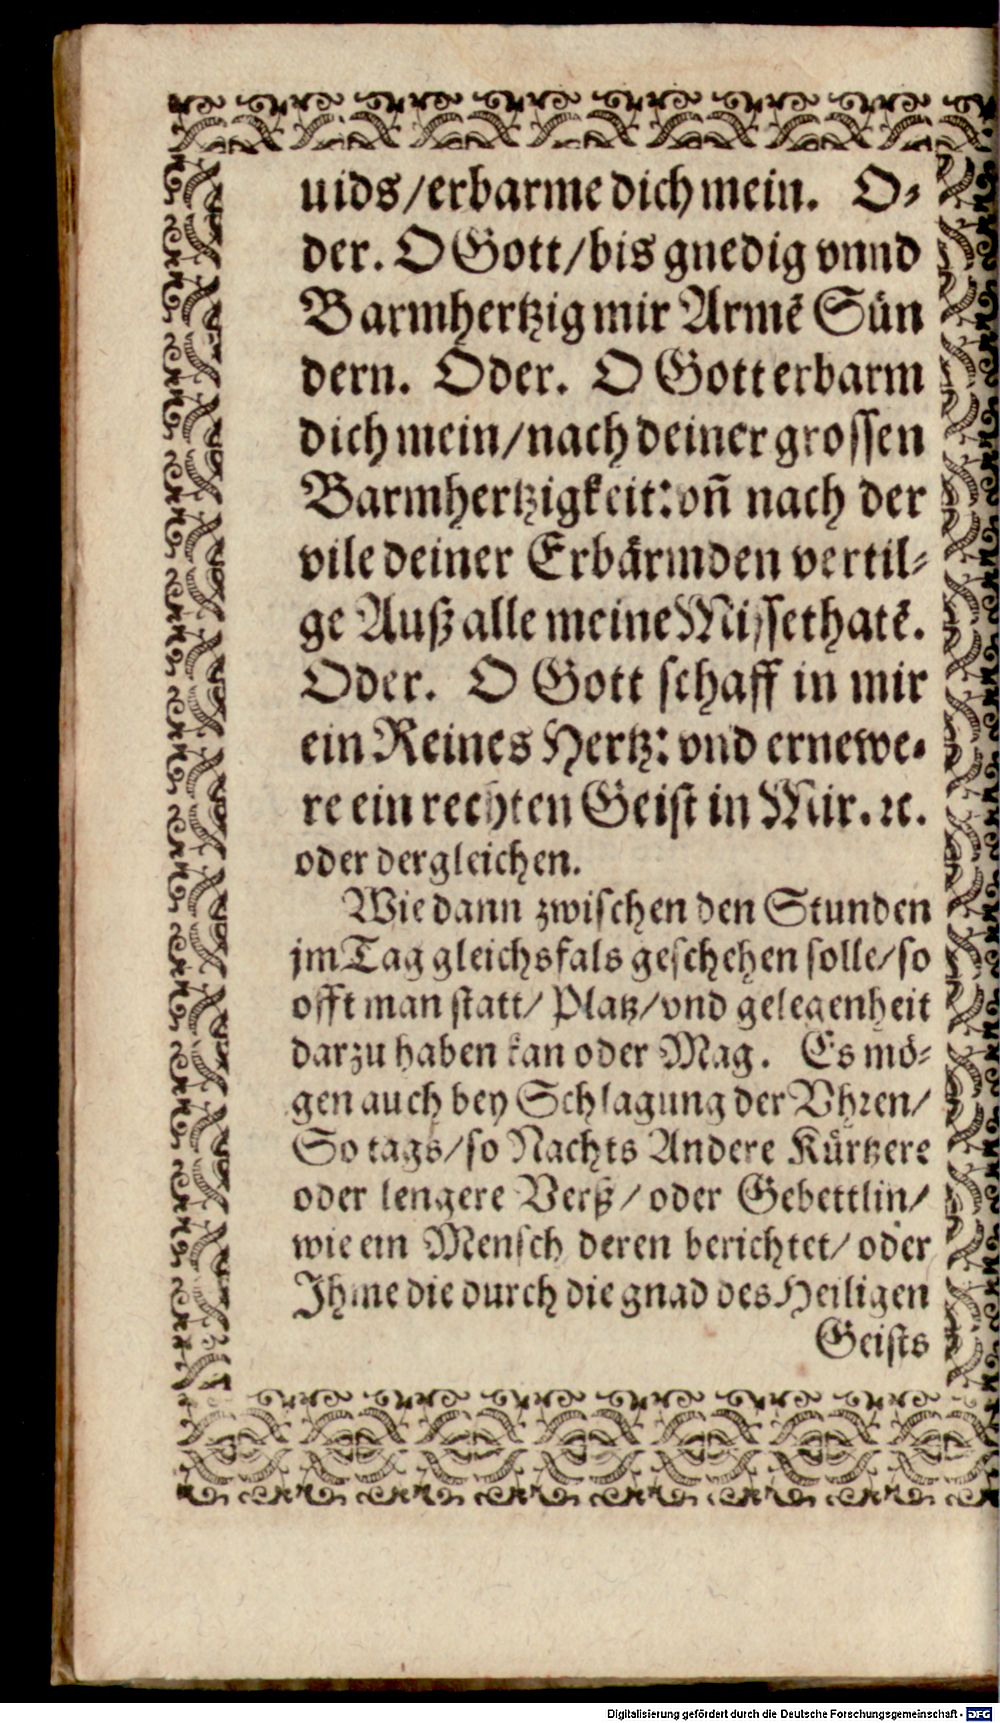 uids/erbarme dich mein. O⸗
der. O Gott/bis gnedig vnnd
Barmhertzig mir Armē Sün
dern. Oder. O Gott erbarm
dich mein/nach deiner grossen
Barmhertzigkeit: vn̄ nach der
vile deiner Erbärmden vertil⸗
ge Auß alle meine Missethatē.
Oder. O Gott schaff in mir
ein Reines Hertz: vnd ernewe⸗
re ein rechten Geist in Mir. ꝛc.
oder dergleichen.
Wie dann zwischen den Stunden
jm Tag gleichsfals geschehen solle/so
offt man statt/ Platz/vnd gelegenheit
darzu haben kan oder Mag. Es mö⸗
gen auch bey Schlagung der Vhren/
So tags/so Nachts Andere Kürtzere
oder lengere Verß/ oder Gebettlin/
wie ein Mensch deren berichtet/ oder
Ihme die durch die gnad des Heiligen
Geists
Digitalisierung gefördert durch die Deutsche Forschungsgemeinschaft - DFG